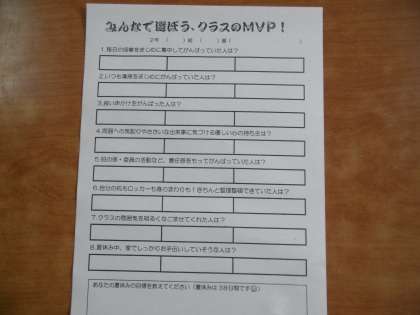 みんなで選ぼう、クラスのMVP！
2年（　　）組（　　）番（　　　　　　）
1.毎日の授業をまじめに集中してがんばっていた人は？
2.いつも清掃をまじめにがんばっていた人は？
3.良い声かけをがんばった人は？
4.周囲への気配りやささいな出来事に気づける優しい心の持ち主は？
5.班の係・委員の活動など、責任感をもってがんばっていた人は？
6.自分の机もロッカーも身のまわりも！きちんと整理整頓できていた人は？
7.クラスの雰囲気を明るくなごませてくれた人は？
8.夏休み中、家でしっかりお手伝いしていそうな人は？
あなたの夏休みの目標を教えてください（夏休みは38日間です